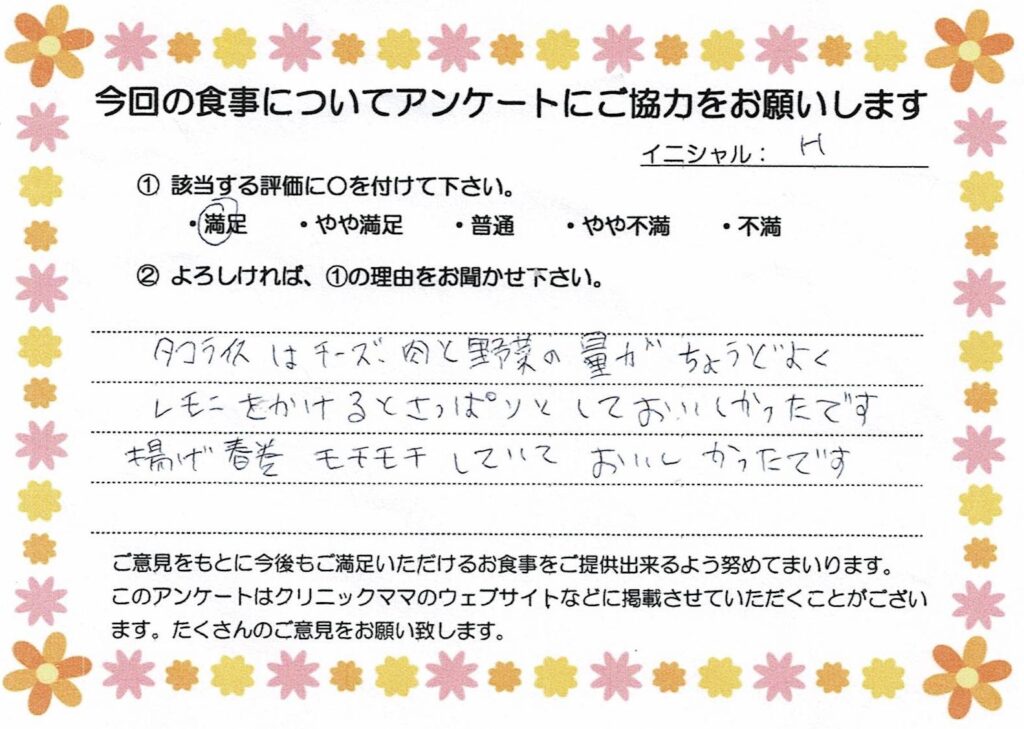 今回の食事についてアンケートにご協力をお願いします
イニシャル： H
① 該当する評価に○を付けて下さい。
・満足 ・やや満足 ・普通 ・やや不満 ・不満
② よろしければ、①の理由をお聞かせ下さい。
タコライスはチーズ、肉と野菜の量がちょうどよく
レモンをかけるとさっぱりとしておいしかったです
揚げ春巻モチモチしていておいしかったです
ご意見をもとに今後もご満足いただけるお食事をご提供出来るよう努めてまいります。
このアンケートはクリニックママのウェブサイトなどに掲載させていただくことがござい
ます。たくさんのご意見をお願い致します。